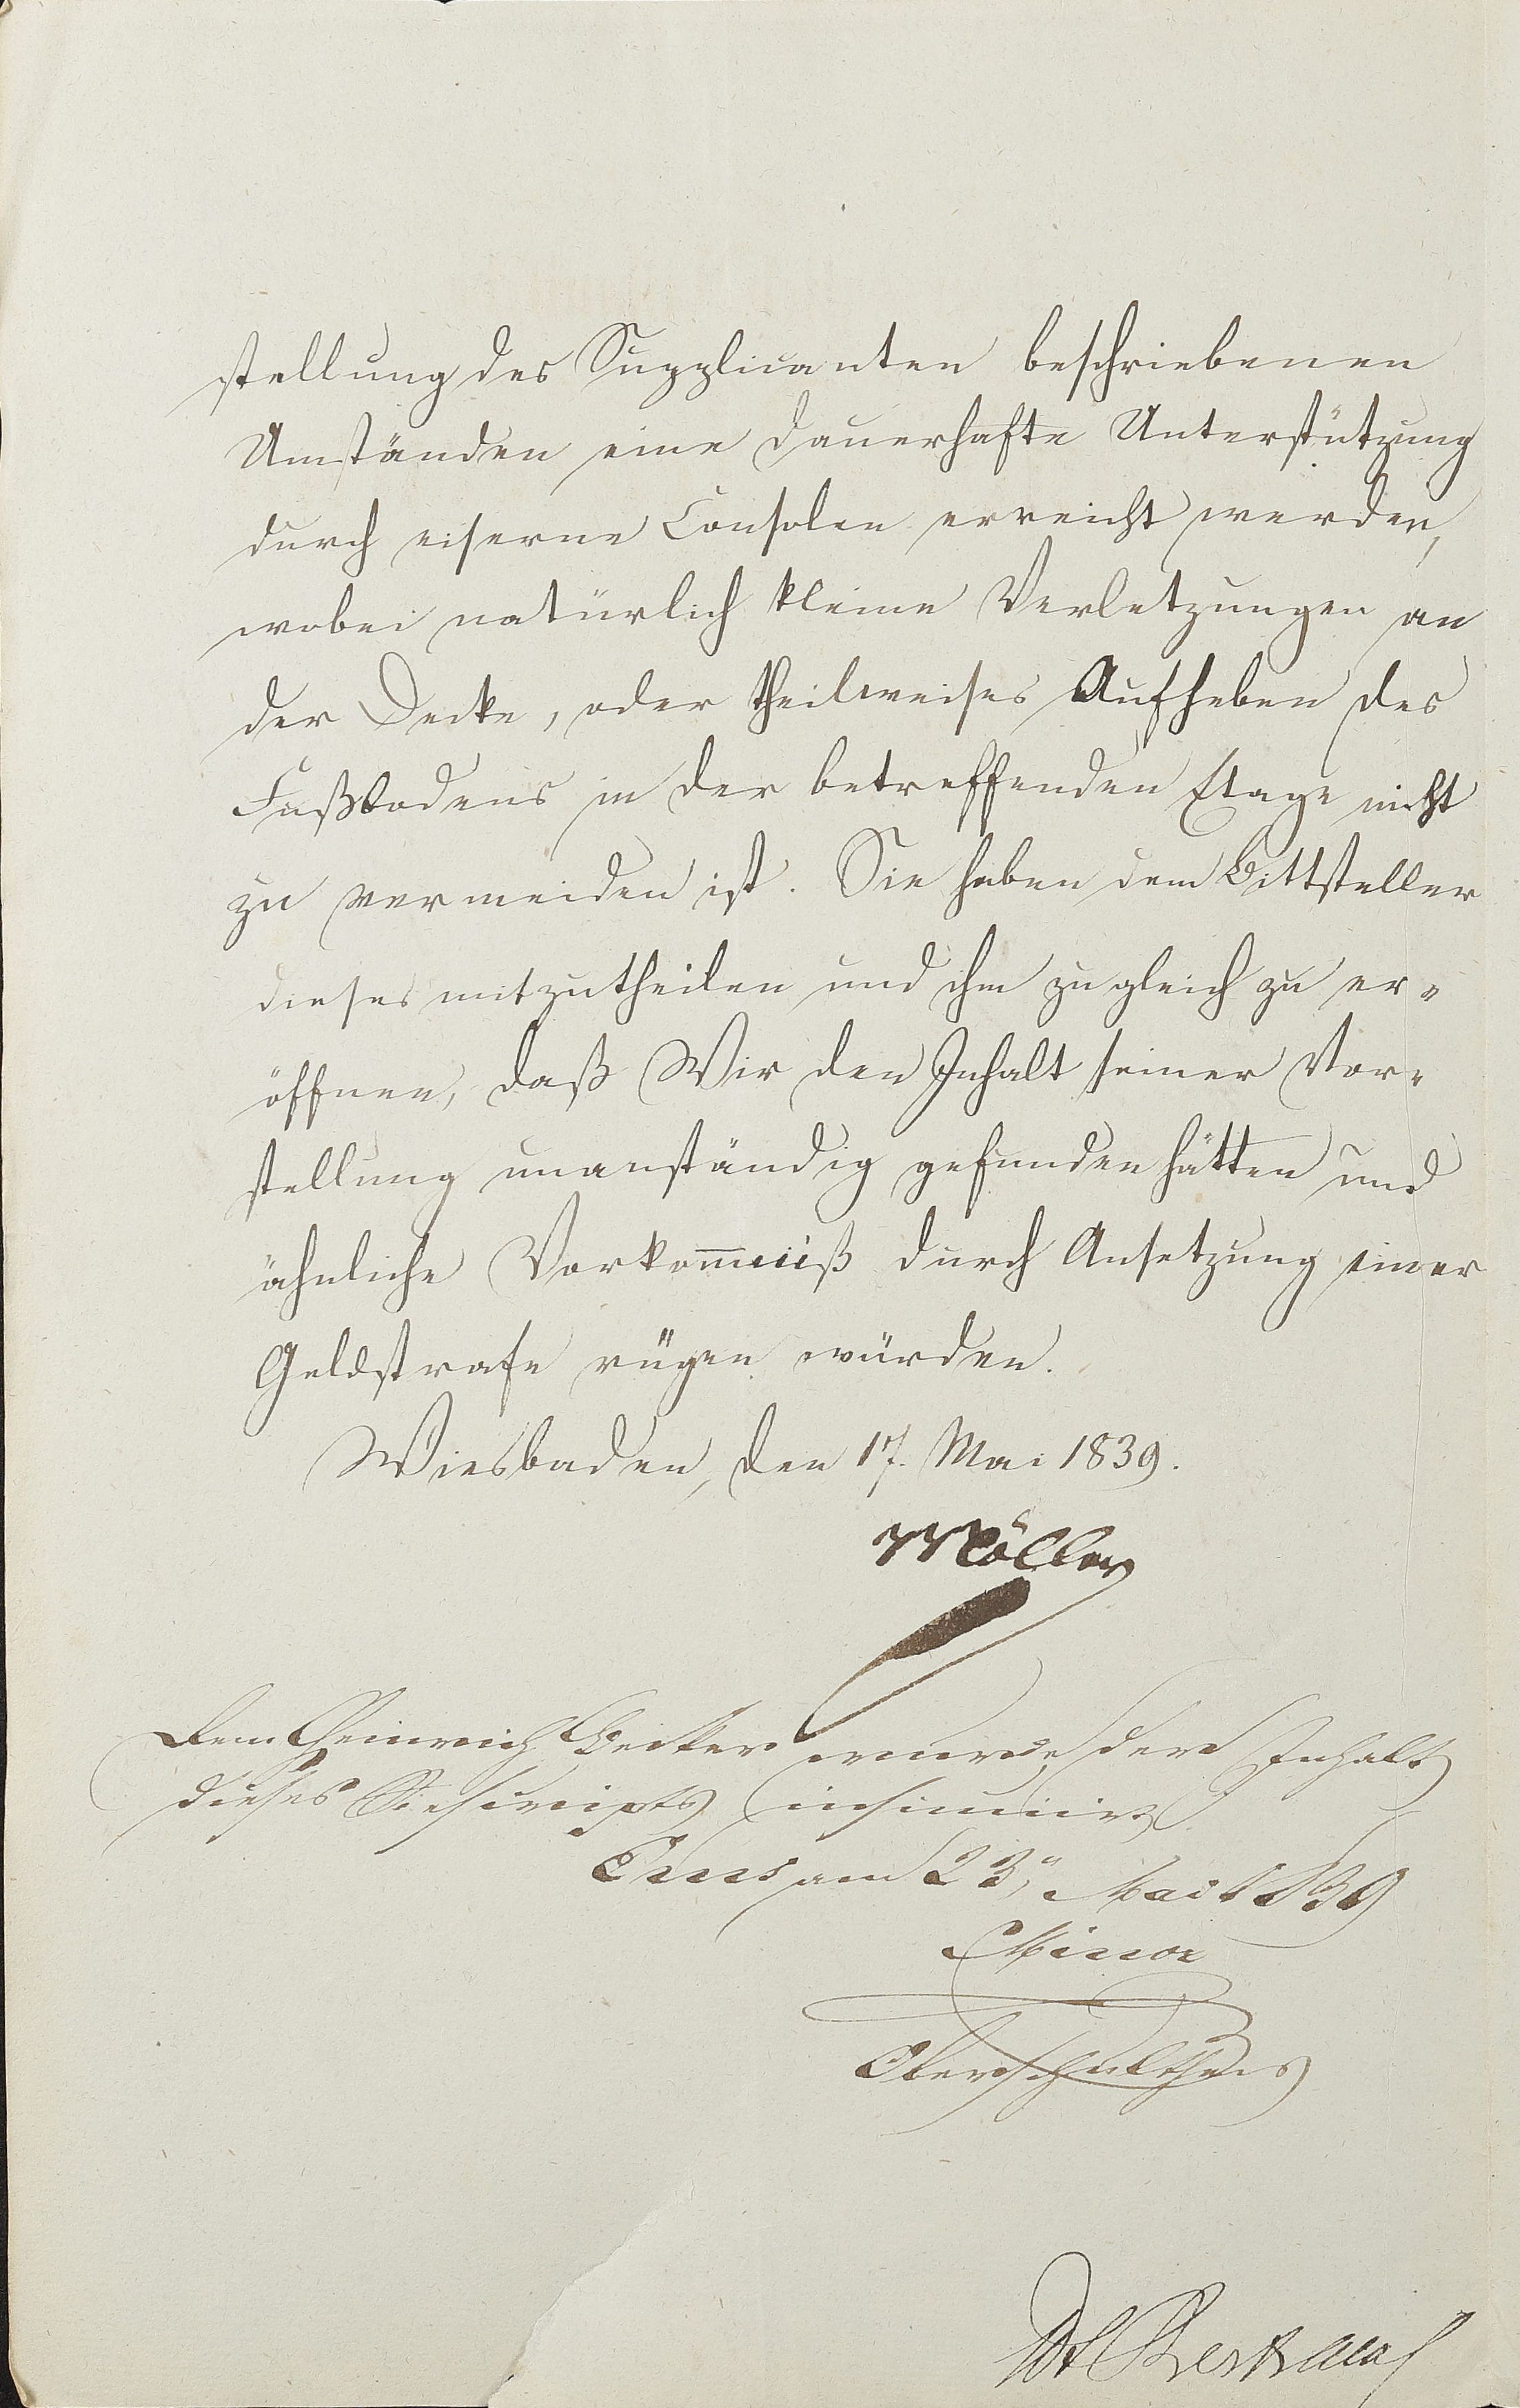 stellung des Supplicanten beschriebenen
Umständen eine dauerhafte Unterstützung
durch eiserne Consolen erreicht werden,
wobei natürlich kleine Verletzungen an
der Decke, oder theilweises Aufheben des
Fußbodens in der betreffenden Etage nicht
zu vermeiden ist. Sie haben dem Bittsteller
dieses mitzutheilen und ihm zugleich zu er-
öffnen, daß Wir den Inhalt seiner Vor-
stellung unanständig gefunden hätten und
ähnliche Vorkom̄niß durch Ansetzung einer
Geldstrafe rügen würden.
Wiesbaden, den 17. Mai 1839.
Möller
Dem Heinrich Becker wurde der Inhalt
dieses Rescripts insinuirt
Ems am 23, Mai 1839
Minor
Oberschultheis